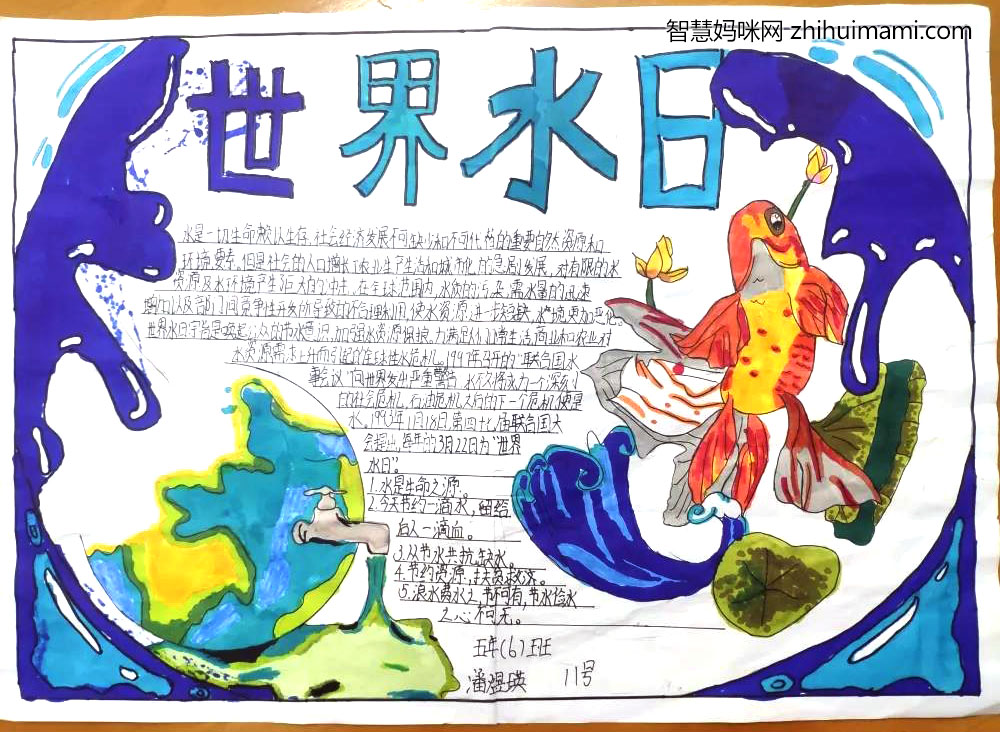 智慧妈咪网-zhihuimami.com
世界水日
水是一切生命赖以生存,社会经济发展不可缺少和不可代替的重要自然资源和
环境要素,但是社会的人口增长工农业生产生活和城市化的急剧发展,对有限的水
资源及水环境产生巨大的冲击,在全球范围内,水质的污染,需水量的迅速
增加以及部门间竞争性开发所导致的不合理利用,使水资源进一步短缺,水环境更加恶化
世界水日宗旨是唤起公众的节水意识,加强水资源保护,为满足人们常生活,商业和农业对
水资源需求上升而引起的全球性水危机。1997年的"联合国水
事会议"向世界发出严重警告 水不久将成为一个深刻
的社会危机,石油危机之后的下一个危机便是
水。1993年1月18日,第四十七届联合国大
会提出,每年的3月22日为"世界
水日"。
1.水是生命之源。
2.今天节约一滴水,留给
后人一滴血。
3.从节水共抗缺水。
4.节约资源,扶贫救济。
5.浪水费水之 节不可有,节水俭水
之心不可无。
五年(6)班
潘 瑛 11号